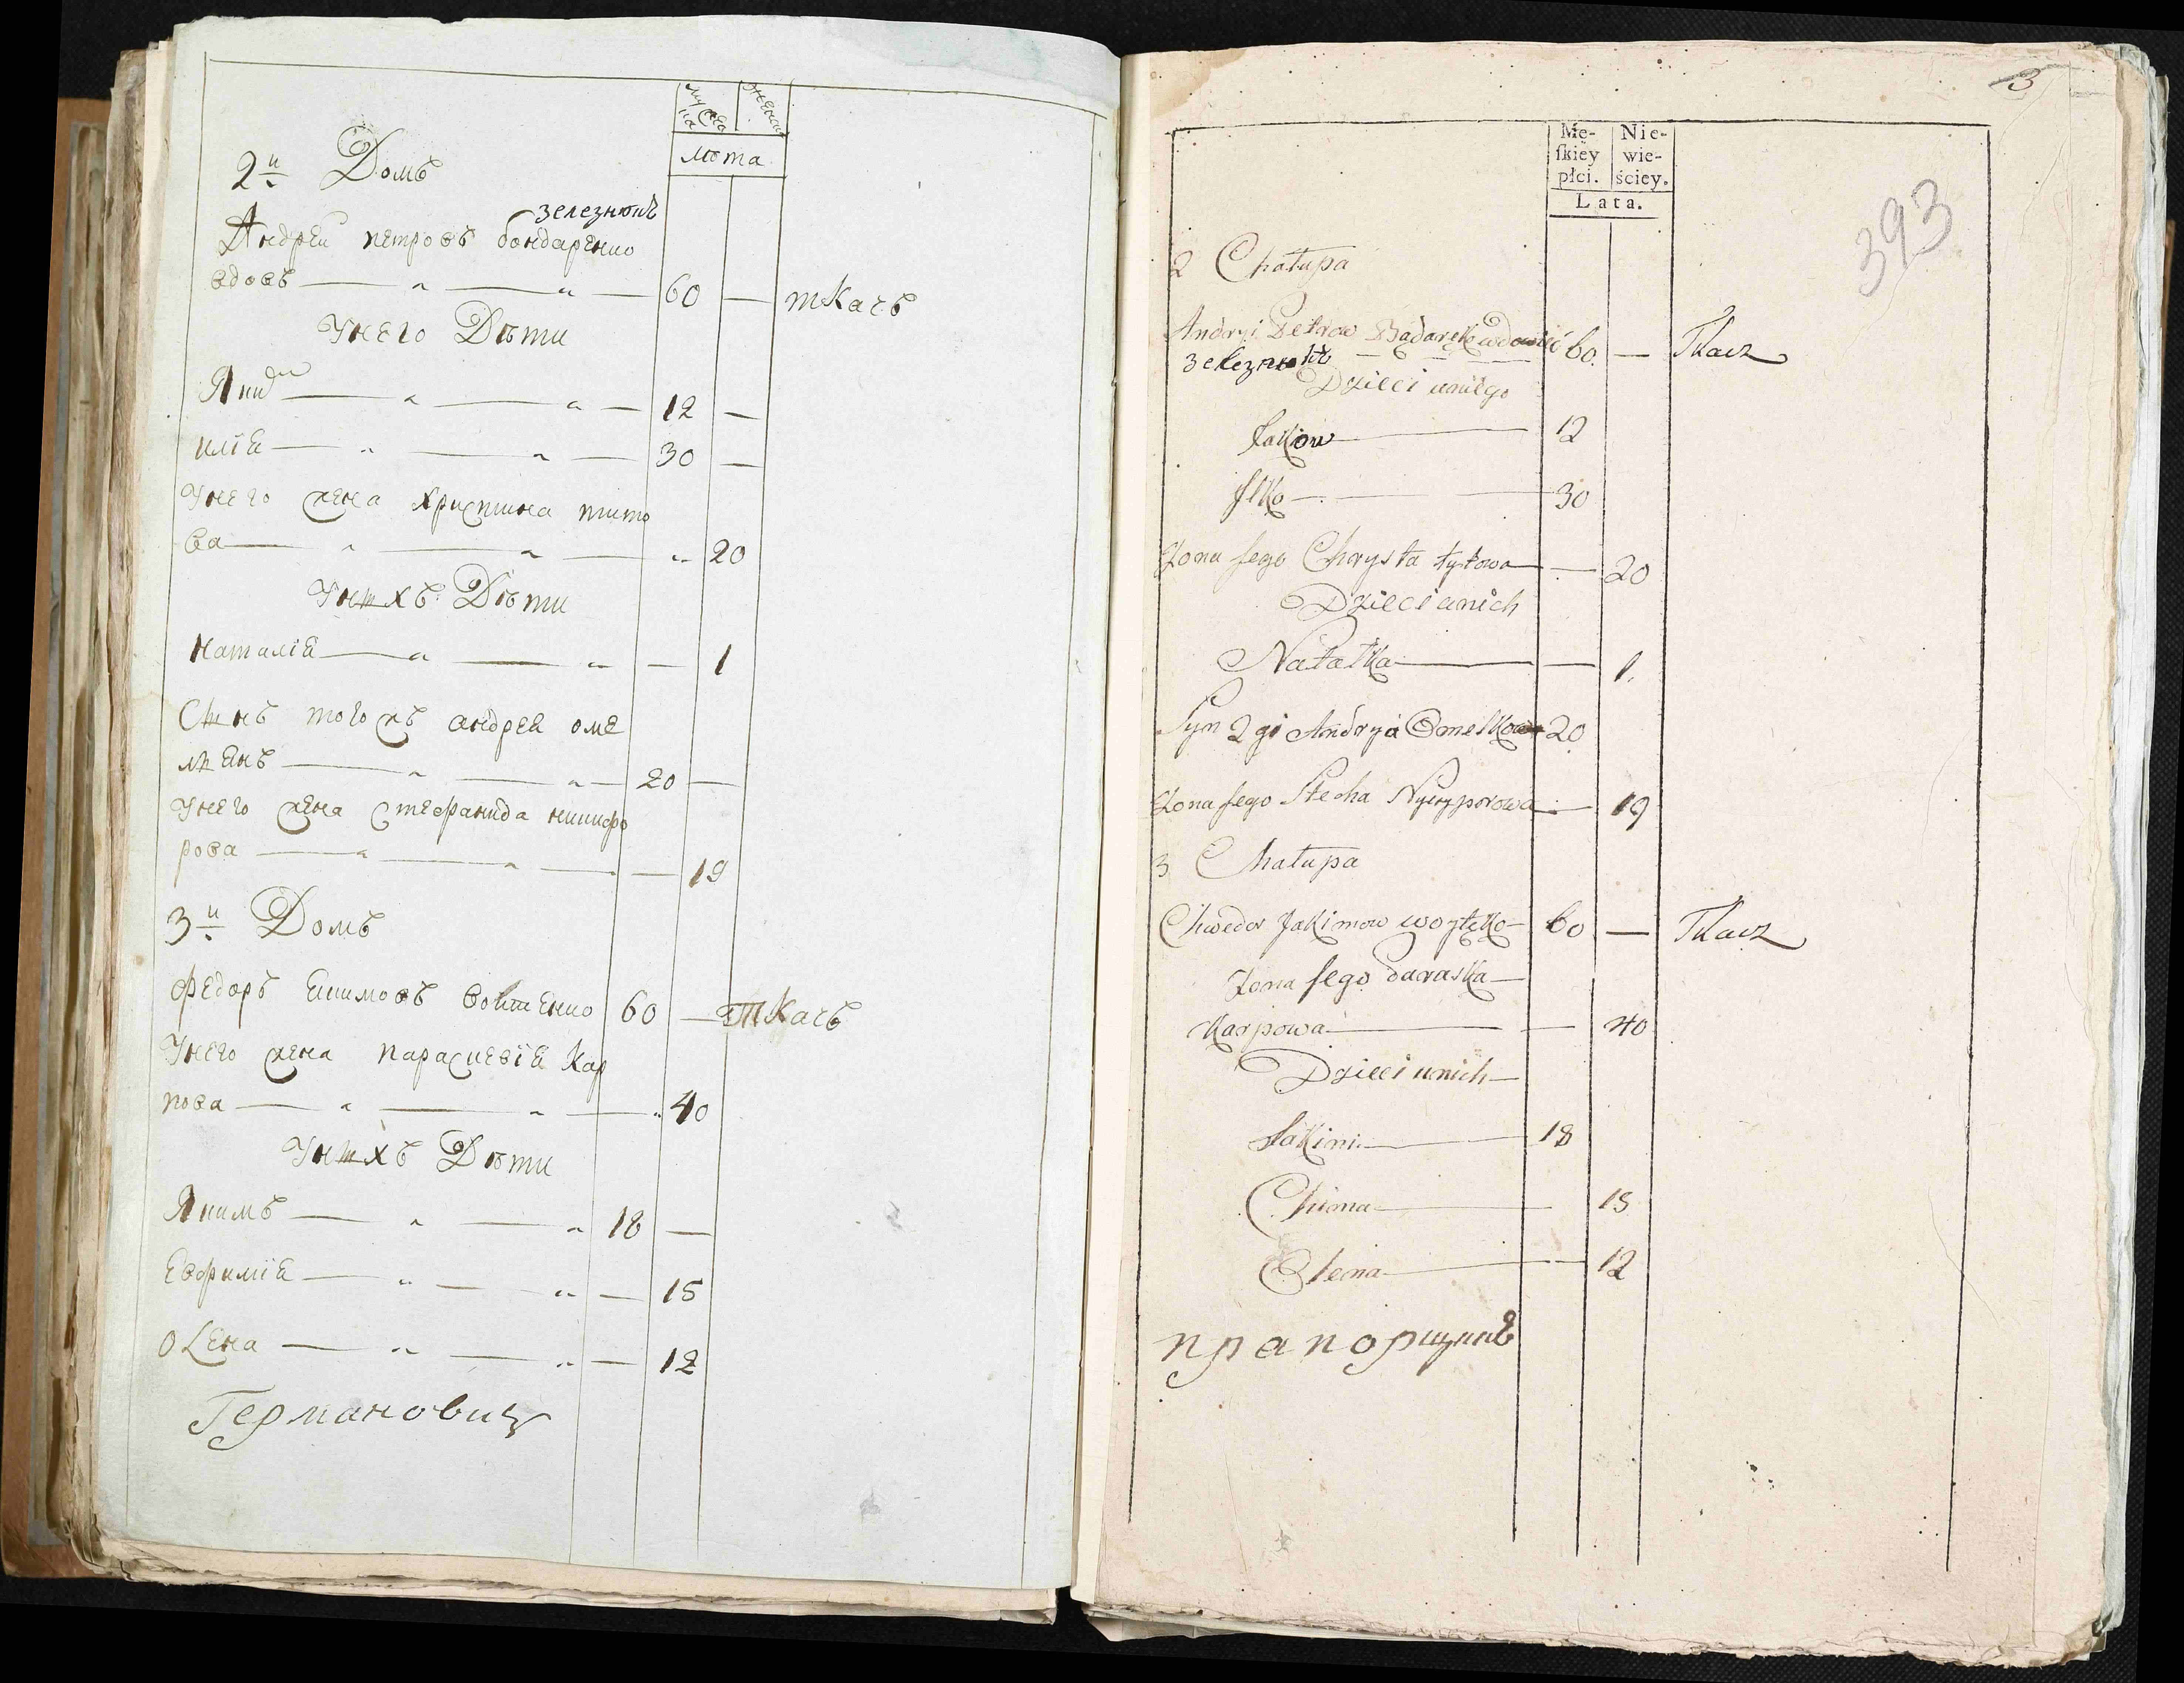 мужеска пола
женска
лѣта
2й Домъ
зелезнюкъ
Андрей петровъ бондаренко
вдовъ — " — " — 60 — ткачъ
Унего Дѣти
Якив — " — " — 12 —
илїя — " — " — 30 —
Унего жена христина тито
ва — " — " — " 20
Унихъ Дѣти
наталїя — " — " — 1
Сынъ тогожъ андрея оме
лянъ — " — " — 20 —
Унего жена Стефанида никифо
рова — " — " — — 19
3й Домъ
Федоръ Екимовъ войтенко 60 — Ткачъ
Унего жена параскевїя Кар
пова — " — " — " 40
Унихъ Дѣти
Якимъ — " — " 18 —
Евфимїя — " — " — 15
оLена — " — " — 12
Германович
13
393
Mę-
skiéy
płci.
Nie-
wie-
ściey.
Lata.
2 Chałupa
Andryi Petrow Bądaręko wdowiec 60. — Tkacz
зелезнюкъ
Dzieci uniego
Jakow — 12
Ilko — 30
Zona Jego Chrysta tytowa — — 20
Dzieci unich
Natałka — — 1.
Syn 2gi Andryia Omelko 20
Zona Jego Stecha Nyczyporowa — 19
3 Chałupa
Chwedor Jakimow woytęko — 60 — Tkacz
Zona Jego Paraska —
Karpowa — — 40
Dzieci unich —
Jakim — 18
Chima — 15
Olena — — 12
прапорщикъ